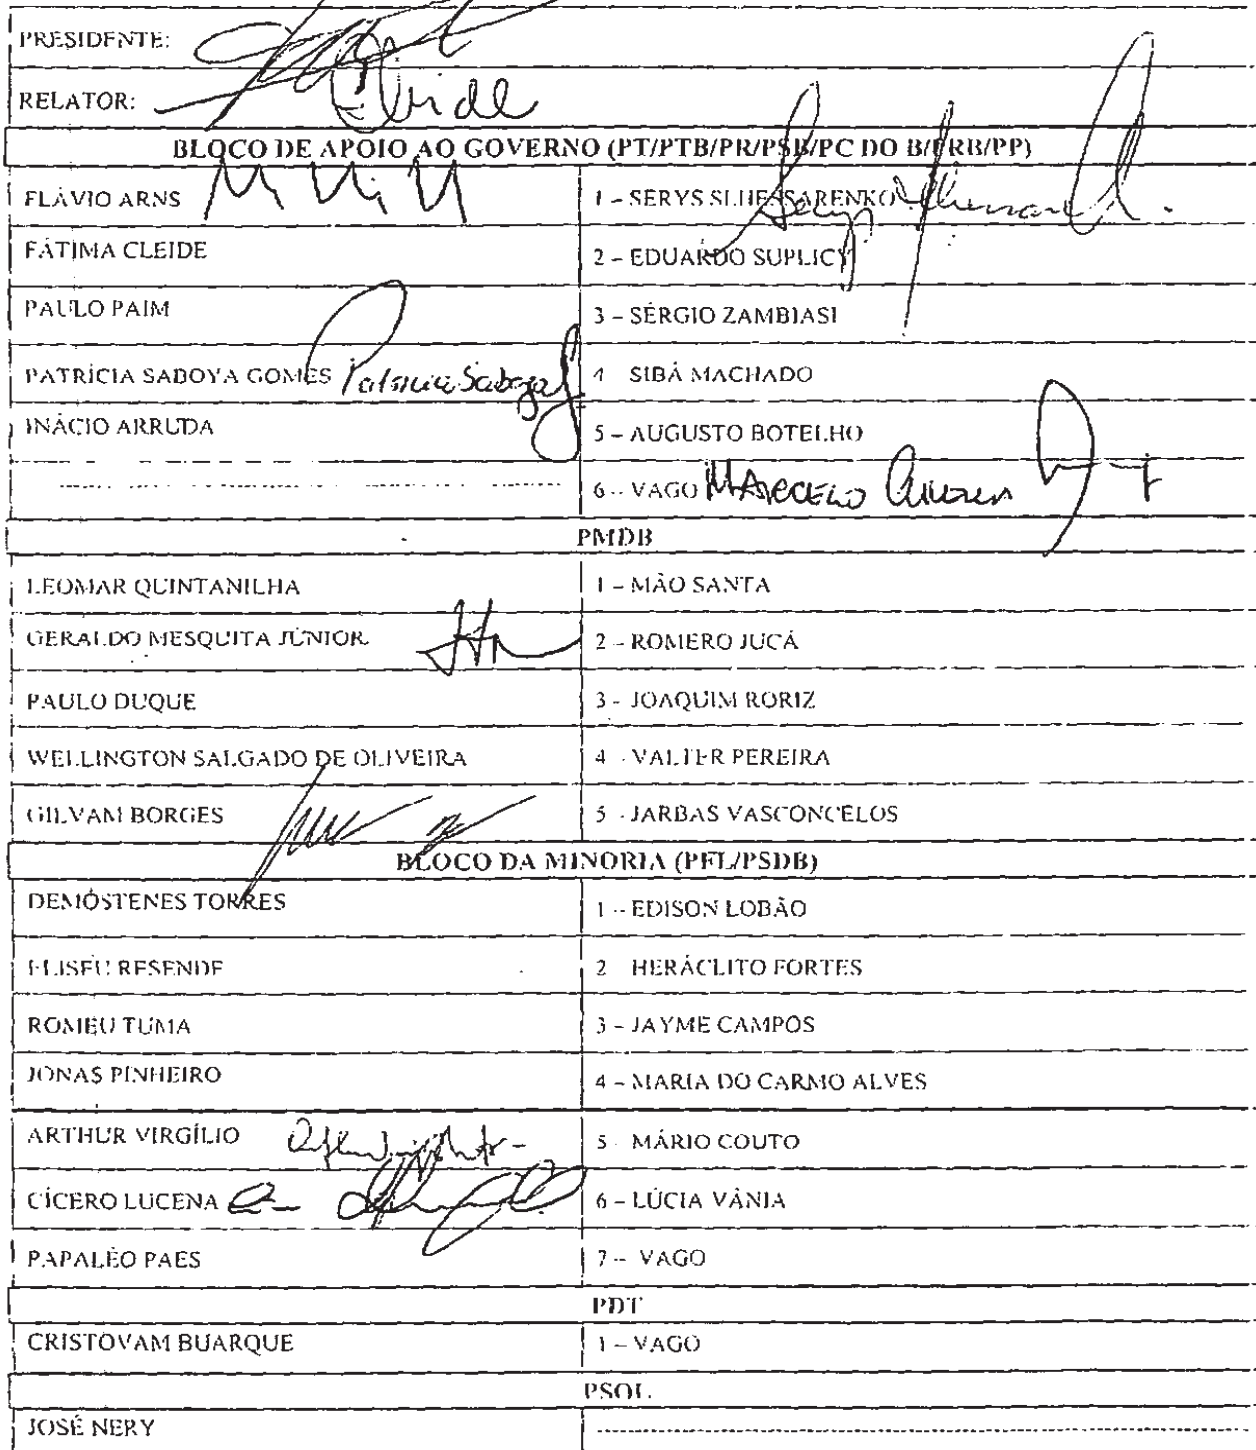 PRESIDENTE:
RELATOR: Cleide
BLOCO DE APOIO AO GOVERNO (PT/PTB/PR/PSB/PC DO B/PRB/PP)
FLÁVIO ARNS
1 – SERYS SLHESSARENKO
FÁTIMA CLEIDE
2 – EDUARDO SUPLICY
PAULO PAIM
3 – SÉRGIO ZAMBIASI
PATRÍCIA SABOYA GOMES Patricia Saboya
4 SIBÁ MACHADO
INÁCIO ARRUDA
5 – AUGUSTO BOTELHO
6 – VAGO MARCELO
PMDB
LEOMAR QUINTANILHA
1 – MÃO SANTA
GERALDO MESQUITA JÚNIOR
2 – ROMERO JUCÁ
PAULO DUQUE
3 - JOAQUIM RORIZ
WELLINGTON SALGADO DE OLIVEIRA
4 - VALTER PEREIRA
GILVAM BORGES
5 - JARBAS VASCONCELOS
BLOCO DA MINORIA (PFL/PSDB)
DEMÓSTENES TORRES
1 – EDISON LOBÃO
ELISEU RESENDE
2 HERÁCLITO FORTES
ROMEU TUMA
3 – JAYME CAMPOS
JONAS PINHEIRO
4 – MARIA DO CARMO ALVES
ARTHUR VIRGÍLIO
5 - MÁRIO COUTO
CÍCERO LUCENA
6 – LÚCIA VÂNIA
PAPALÉO PAES
7 – VAGO
PDT
CRISTOVAM BUARQUE
1 – VAGO
PSOL
JOSÉ NERY